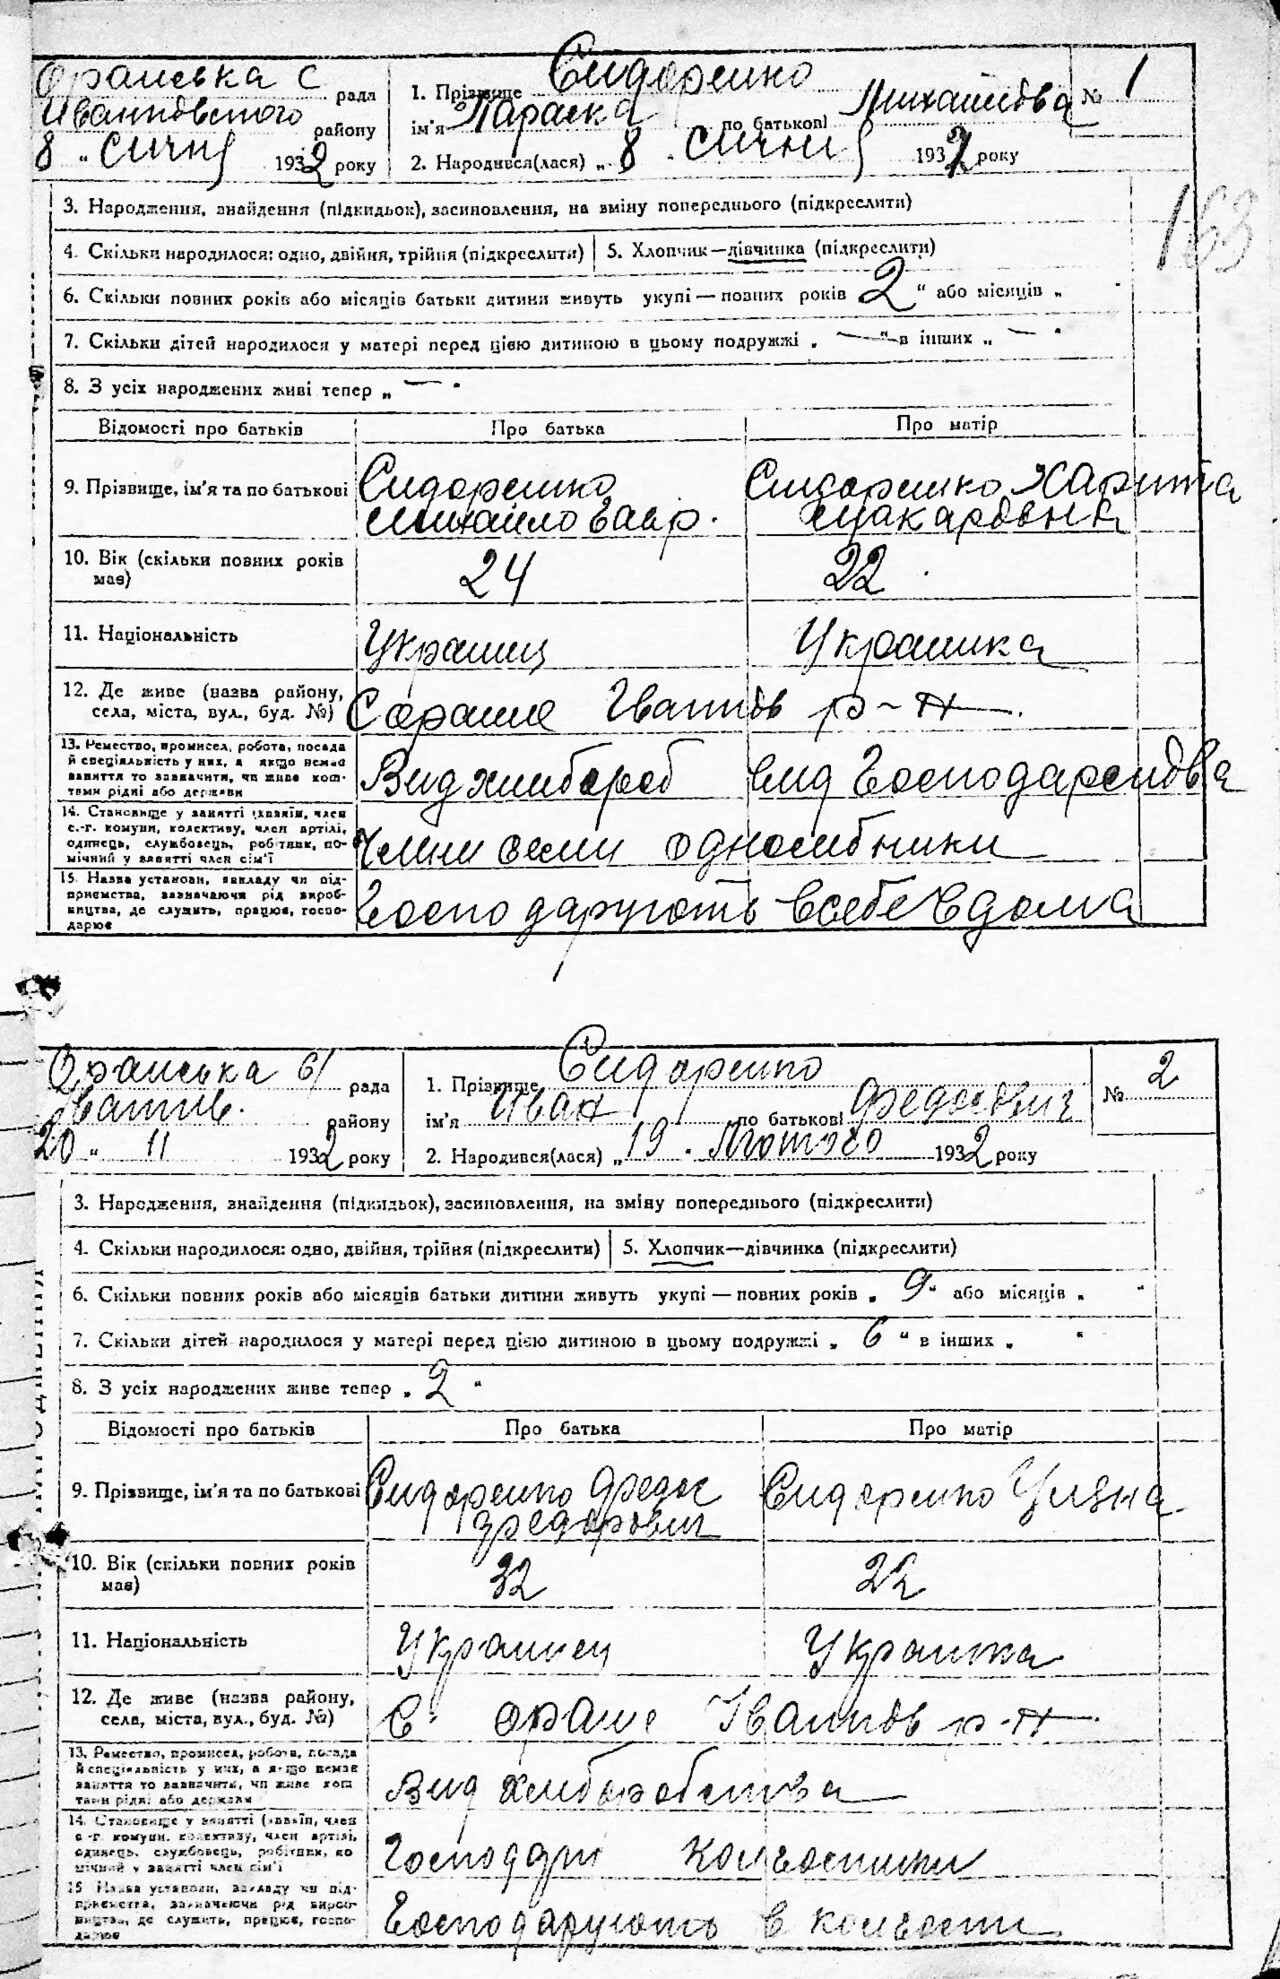 Оранська с рада
Иванковского району
8 „ Сичня 1932 року
1. Прізвище Сидоренко
ім'я Параска по батькові Михайловa
2. Народився(лася) „ 8 . Сичня 1932 року
№ 1
163
3. Народження, знайдення (підкидьок), засиновлення, на зміну попереднього (підкреслити)
4. Скільки народилося: одно, двійня, трійня (підкреслити) 5. Хлопчик—дівчинка (підкреслити)
6. Скільки повних років або місяців батьки дитини живуть укупі — повних років 2 " або місяців „
7. Скільки дітей народилося у матері перед цією дитиною в цьому подружжі „ — " в інших „ — "
8. З усіх народжених живі тепер „ — "
Відомості про батьків Про батька Про матір
9. Прізвище, ім'я та по батькові Сидоренко Сидоренко Харита
Михайло Гавр. Макаровна
10. Вік (скільки повних років має) 24 22
11. Національність Украинц Украинка
12. Де живе (назва району, села, міста, вул., буд. №) С оране Іванков р-н
13. Ремество, промисел, робота, посада
й спеціяльність у них, а якщо немає
заняття то зазначити, чи живе кош-
тами рідні або держави
Вид хлибороб вид Господарсдва
14. Становище у занятті (хазяїн, член
с.-г. комуни, колективу, член артілі,
одинець, службовець, робітник, по-
мічний у занятті член сім'ї
члени семи односибники
15. Назва установи, закладу чи під-
приємства, зазначаючи рід вироб-
ництва, де служить, працює, госпо-
дарює
Господарують всебе вдома
Оранська с/ рада
Іванків. району
20 „ 11 1932 року
1. Прізвище Сидоренко
ім'я Иван по батькові Федосович
2. Народився(лася) „ 19 . Лютого 1932 року
№ 2
3. Народження, знайдення (підкидьок), засиновлення, на зміну попереднього (підкреслити)
4. Скільки народилося: одно, двійня, трійня (підкреслити) 5. Хлопчик—дівчинка (підкреслити)
6. Скільки повних років або місяців батьки дитини живуть укупі — повних років „ 9 " або місяців „ "
7. Скільки дітей народилося у матері перед цією дитиною в цьому подружжі „ 6 " в інших „ "
8. З усіх народжених живе тепер „ 2 "
Відомості про батьків Про батька Про матір
9. Прізвище, ім'я та по батькові Сидоренко Федос Сидоренко
Федорович
10. Вік (скільки повних років має) 32
11. Національність Украинец Украинка
12. Де живе (назва району, села, міста, вул., буд. №) С. оране Іванков р-н
13. Ремество, промисел, робота, посада
й спеціяльність у них, а якщо немає
заняття то зазначити, чи живе кош
тами рідні або держави
Вид хлиборобства
14. Становище у занятті (хазяїн, член
с-г. комуни, колективу, член артілі,
одинець, службовець, робітник, по
мічний у занятті член сім'ї
Господари колгоспники
15 Назва установи, закладу чи під-
приємства, зазначаючи рід вироб-
ництва, де служить, працює, госпо-
дарює
Господарують в колгоспи